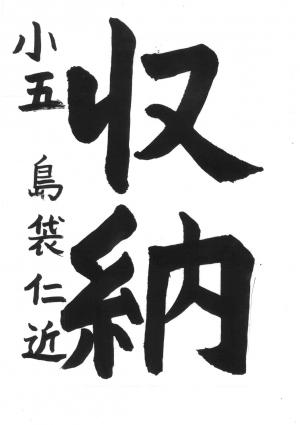 収納
小五 島袋仁近